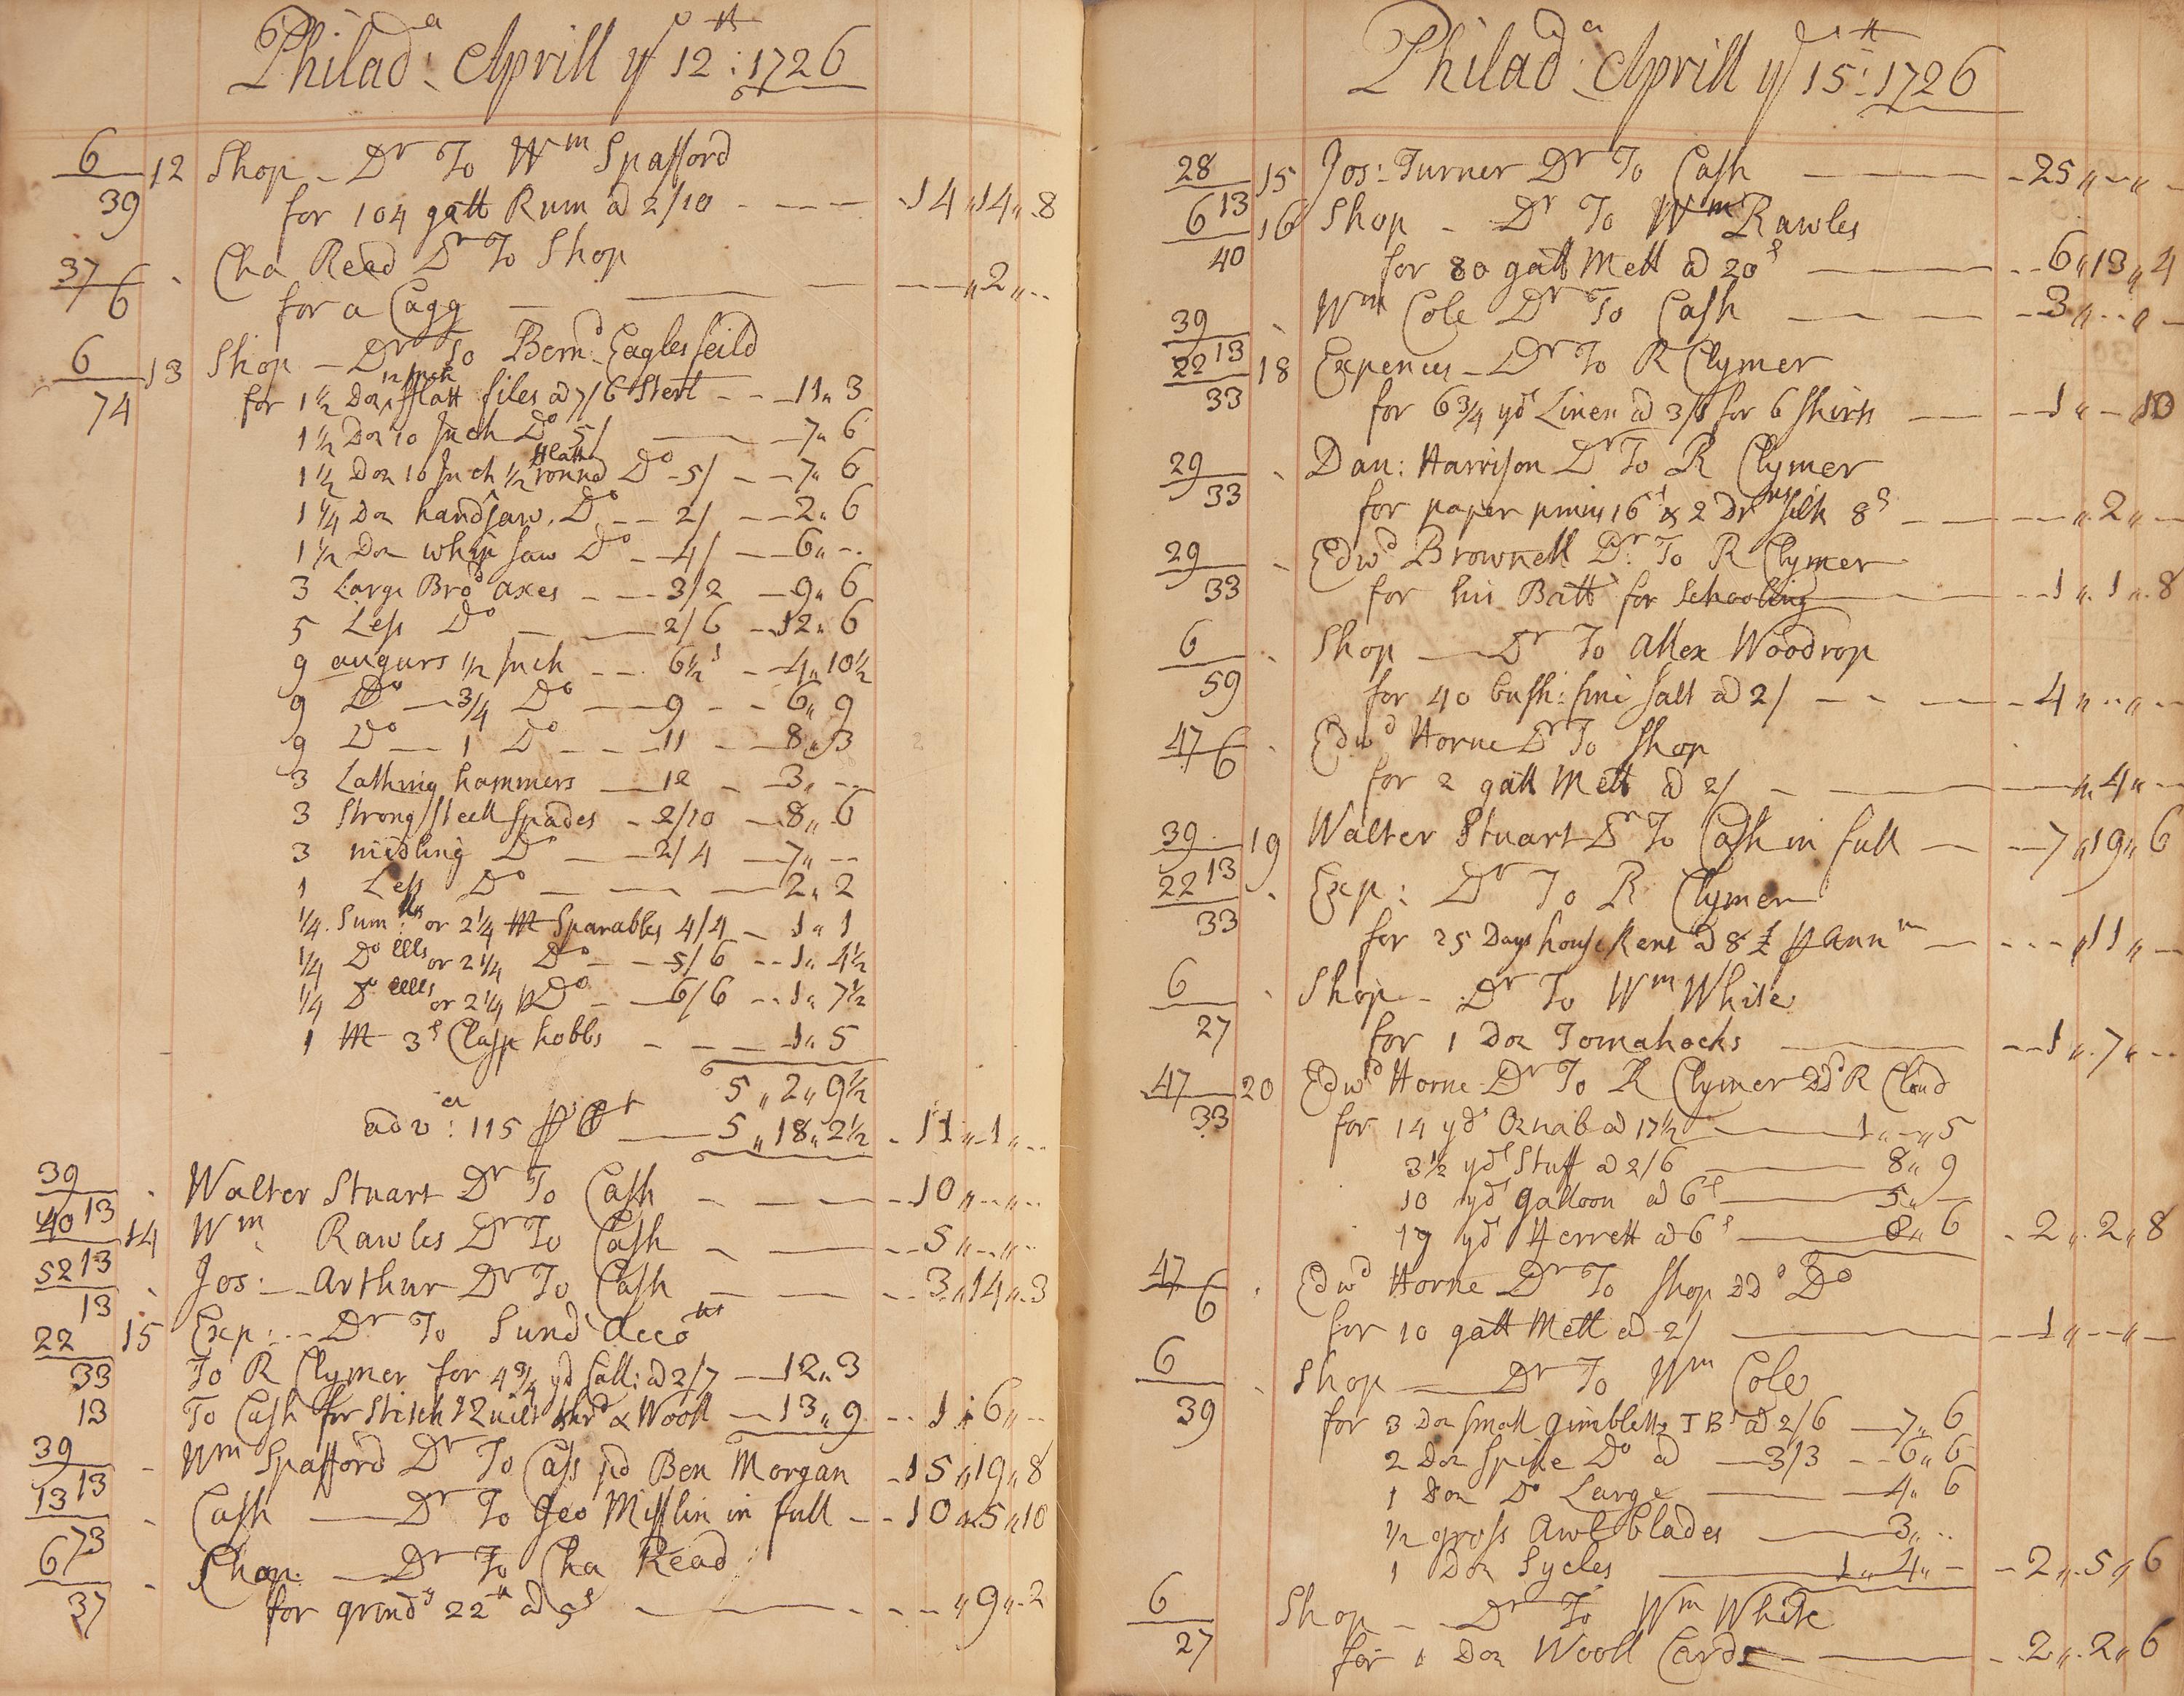 Philad:a Aprill ye 12th: 1726
6/39 12 Shop - Dr To Wm Spafford
for 104 gall Rum @ 2/10 - - - - 14"14"8
37/6 Cha Read Dr To Shop
for a Cagg - - - "2"--
6/74 13 Shop - Dr To Bernd: Eaglesfeild
for 1½ Doz 12 Inch fflatt files @ 7/6 Sterl - - 11"3
1½ Doz 10 Inch Do 5/ - 7"6
1½ Doz 10 Inch ½ round fflatt Do - 5/ - - 7"6
1¼ Doz handsaw Do - - 2/ - - 2"6
1½ Doz whip saw Do - 4/ - 6"--
3 Large Brod axes - - 3/2 - 9"6
5 Less Do - 2/6 - 12"6
9 augurs ½ Inch - - 6½d - 4"10½
9 Do - 3/4 Do - 9 - - 6"9
9 Do - 1 Do - - - 11 - 8"3
3 Lathing hammers - 12 - 3"--
3 Strong steell Spades - 2/10 - 8"6
3 midling Do - 2/4 - 7"--
1 Less Do - - - 2"2
¼ Sum: or 2¼ M Sparables 4/4 - 1"1
¼ Do or 2¼ Do - - 5/6 - - 1"4½
¼ Do or 2¼ Do - 6/6 - - 1"7½
1 M 3d Clasp hobbs - - - 1"5
5"2"9½
adva: 115 p Ct - 5"18"2½ - 11"1"--
39/13 Walter Stuart Dr To Cash - - - 10"--"--
40/13 14 Wm Rawles Dr To Cash - - - 5"--"--
52/13 Jos: - Arthur Dr To Cash - - - 3"14"3
22 15 Exp: - - Dr To Sund Accots
33 To R Clymer for 4¾ yd Call: @ 2/7 - 12"3
13 To Cash for Stitch Quilt thrd & Wooll - 13"9 - - 1"6"--
39/13 Wm Spafford Dr To Cass pd Ben Morgan - 15"19"8
13/73 Cash - Dr To Geo Mifflin in full - - 10"5"10
6/37 Shop - Dr To Cha Read
for grinds 22 @ 5d - - - "9"2
Philad:a Aprill ye 15th: 1726
28/13 15 Jos: Turner Dr To Cash - - - 25"--"--
6/40 16 Shop - Dr To Wm Rawles
for 80 gall Mell @ 20d - - - 6"13"4
39/13 Wm Cole Dr To Cash - - - 3"--"--
22/33 18 Expences - Dr To R Clymer
for 6¾ yds Linen @ 3/ for 6 Shirts - - 1"-"10
29/33 Dan: Harrison Dr To R Clymer
for paper pinns 16d & 2 Drms silk 8d - - - "2"--
29/33 Edwd Brownell Dr To R Clymer
for his Ball for Schooling - - 1"1"8
6/59 Shop - Dr To Allex Woodrop
for 40 bush: fine salt @ 2/ - - - 4"--"--
47/6 Edwd Horne Dr To Shop
for 2 gall Mell @ 2/ - - "4"--
39/13 19 Walter Stuart Dr To Cash in full - - 7"19"6
22/33 Exp: Dr To R Clymer
for 25 Days house Rent @ 8 £ p Annm - - - "11"--
6/27 Shop - Dr To Wm White
for 1 Doz Tomahocks - - 1"7"--
47/33 20 Edwd Horne Dr To R Clymer DD R Cloud
for 14 yds Oznab @ 17½ - 1"-"5
3½ yds Stuff @ 2/6 - 8"9
10 yds galloon @ 6d - 5"-
17 yds fferrett @ 6d - 8"6 - 2"2"8
47/6 Edwd Horne Dr To Shop DD Do
for 10 gall Mell @ 2/ - - 1"--"--
6/39 Shop - Dr To Wm Cole
for 3 Doz small gimbletts I B @ 2/6 - 7"6
2 Doz Spike Do @ - 3/3 - - 6"6
1 Doz Do Large - - 4"6
½ gross Awl blades - 3"--
1 Doz Sycles - 1"4"- - 2"5"6
6/27 Shop - - Dr To Wm White
for 1 Doz Wooll Cards - - 2"2"6